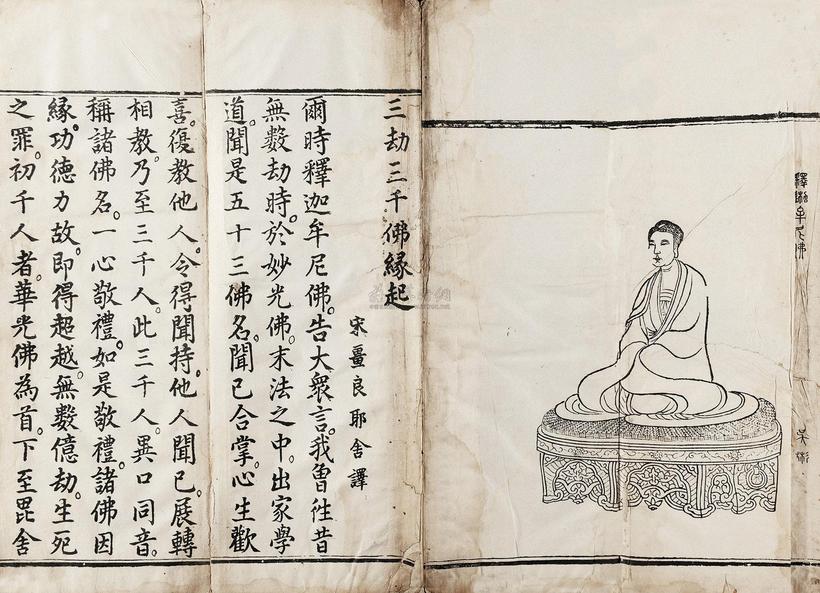 釋迦牟尼佛
三劫三千佛緣起
宋畺良耶舍譯
爾時釋迦牟尼佛。告大衆言。我曾往昔
無數劫時。於妙光佛。末法之中。出家學
道。聞是五十三佛名。聞已合掌。心生歡
喜。復教他人。令得聞持。他人聞已。展轉
相教。乃至三千人。此三千人。異口同音。
稱諸佛名。一心敬禮。如是敬禮。諸佛因
緣。功德力故。即得超越。無數億劫。生死
之罪。初千人者。華光佛為首。下至毘舍